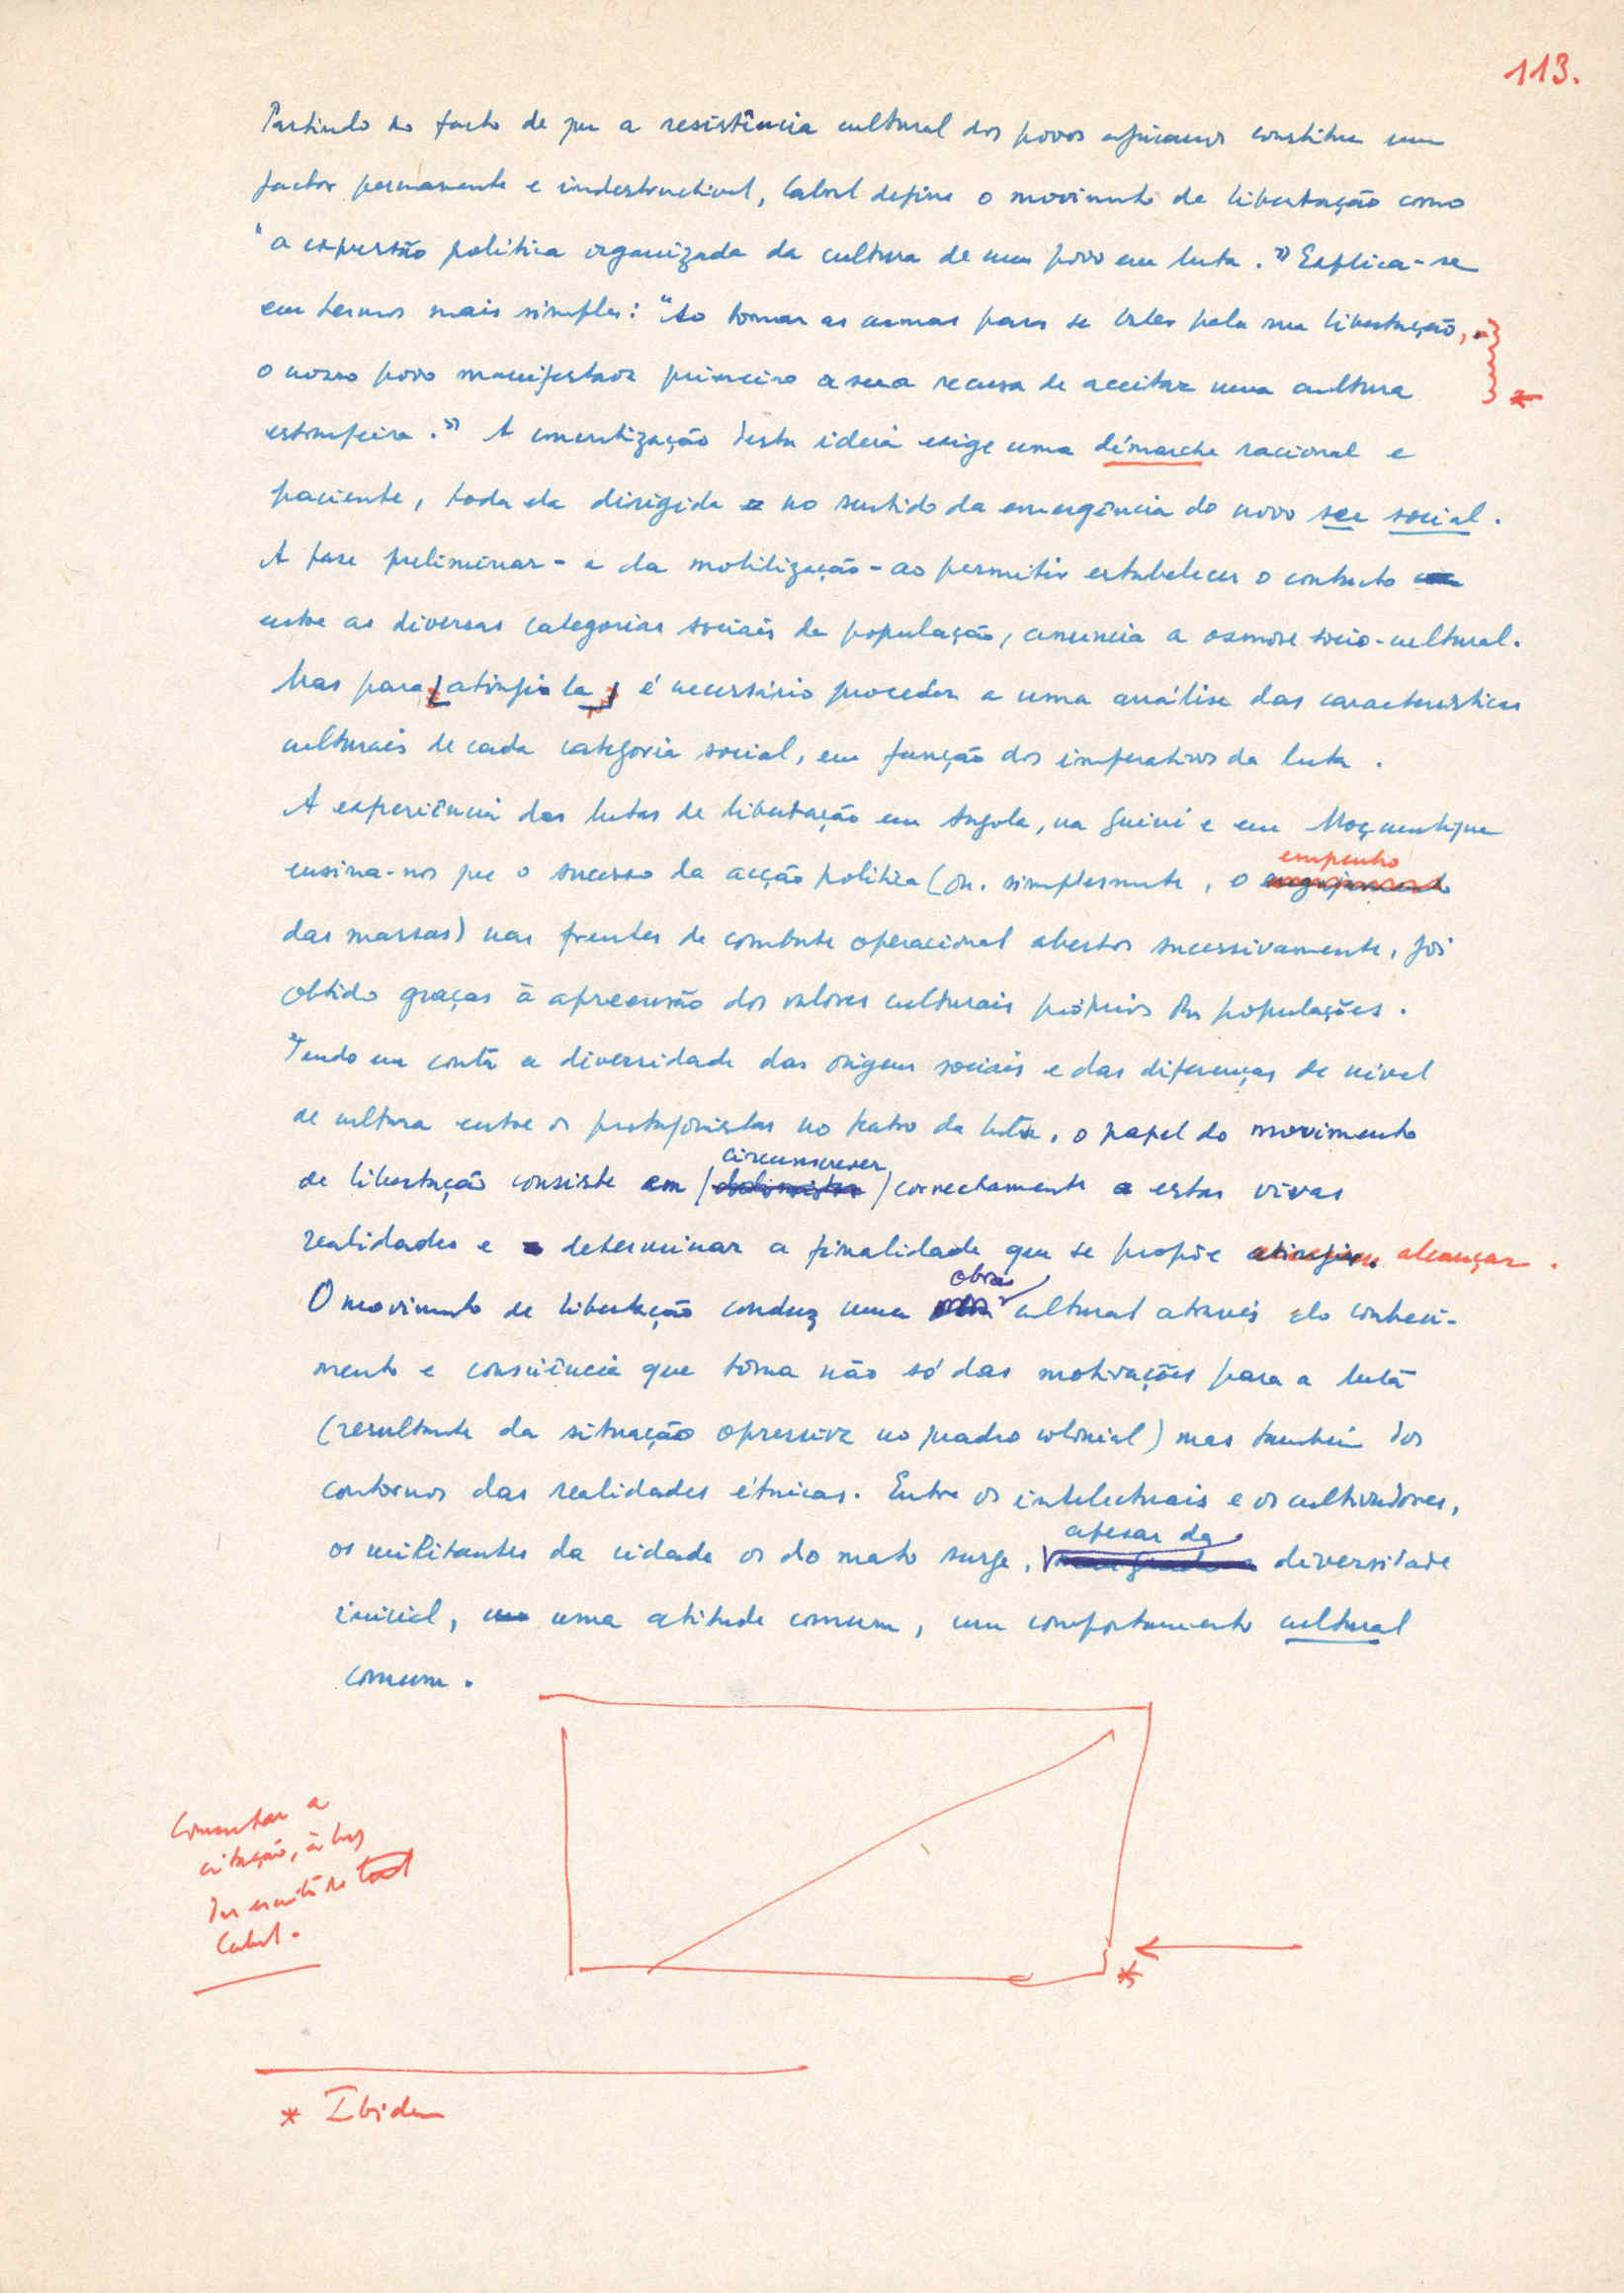 113.
Partindo do facto de que a resistência cultural dos povos africanos constitue um
factor permanente e indestructivel, Cabral define o movimento de libertação como
"a expressão política organizada da cultura de um povo em luta.» Explica-se
em termos mais simples: "Ao tomar as armas para se bater pela sua libertação,
o nosso povo manifestava primeiro a sua recusa de aceitar uma cultura
estrangeira.» A concretização desta ideia exige uma démarche racional e
paciente, toda ela dirigida no sentido da emergência do novo ser social.
A fase preliminar - a da mobilização - ao permitir estabelecer o contacto
entre as diversas categorias sociais da população, anuncia a osmose socio-cultural.
Mas para [atingi-la] é necessário proceder a uma análise das características
culturais de cada categoria social, em função dos imperativos da luta.
A experiência das lutas de libertação em Angola, na Guiné e em Moçambique
ensina-nos que o sucesso da acção política (ou. simplesmente, o engajamento empenho
das massas) nas frentes de combate operacional abertos sucessivamente, foi
obtido graças à apreensão dos valores culturais próprios das populações.
Tendo em conta a diversidade das origens sociais e das diferenças de nivel
de cultura entre os protagonistas no teatro da luta, o papel do movimento
de libertação consiste em / circunscrever / correctamente a estas vivas
realidades e determinar a finalidade que se propõe atingir. alcançar.
O movimento de libertação conduz uma obra cultural através do conheci-
mento e consciência que toma não só das motivações para a luta
(resultante da situação opressiva no quadro colonial) mas também dos
contornos das realidades étnicas. Entre os intelectuais e os cultivadores,
os militantes da cidade os do mato surge, apesar da diversidade
inicial, uma atitude comum, um comportamento cultural
comum.
Comentar a
citação, à luz
dos escritos de
Cabral.
*
* Ibidem